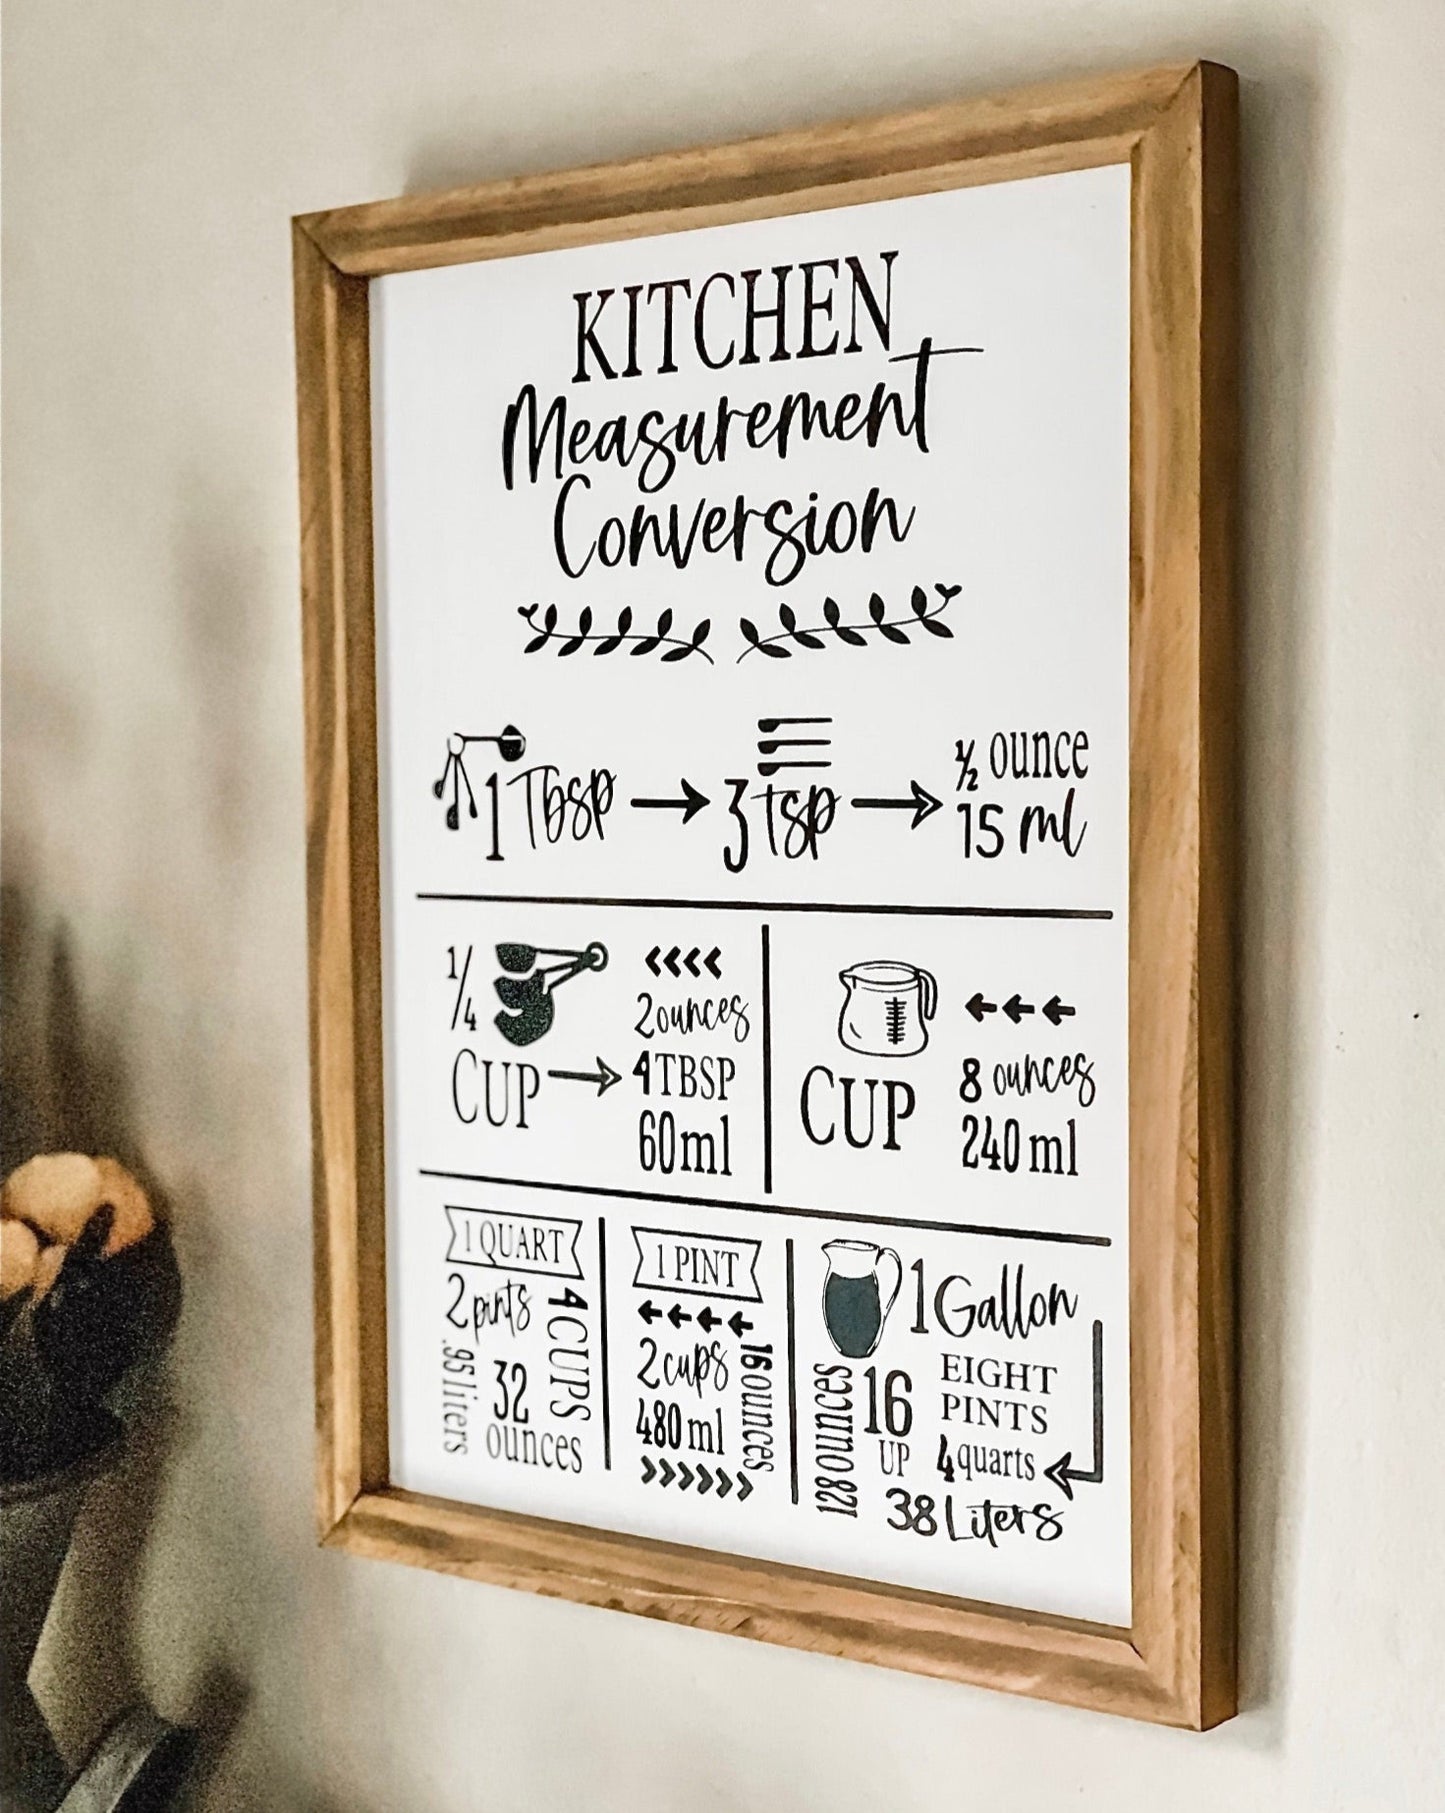 KITCHEN
Measurement
Conversion
1 Tbsp
3 tsp
1/2 ounce
15 ml
1/4
CUP
2 ounces
4 TBSP
60 ml
CUP
8 ounces
240 ml
1 QUART
2 pints
.95 liters
32
ounces
4 CUPS
1 PINT
2 cups
480 ml
16 ounces
1 Gallon
128 ounces
16
UP
EIGHT
PINTS
4 quarts
38 Liters